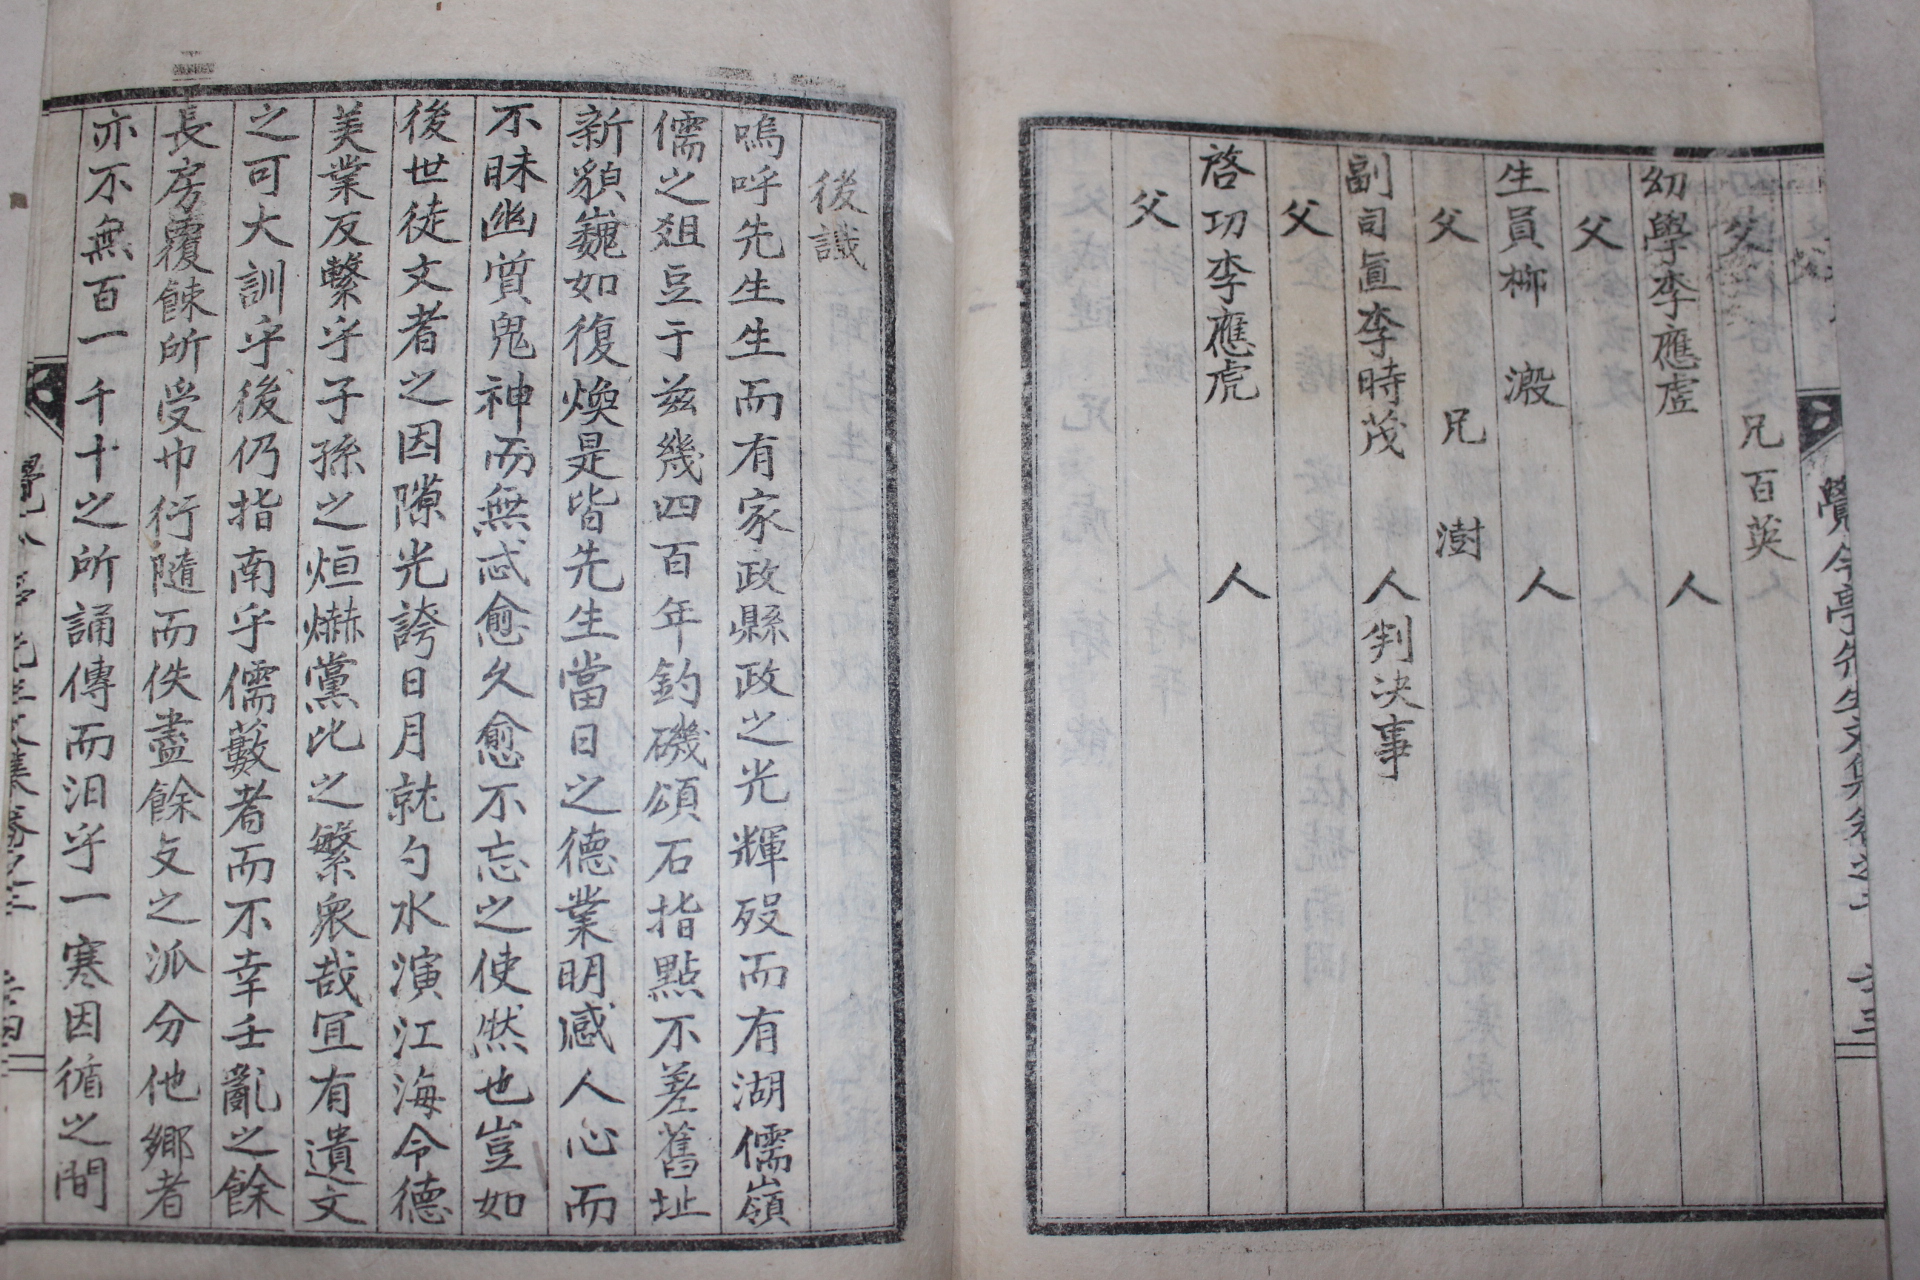 覺今亭先生文集卷之二
父 兄百英
幼學李應虛 人
父
生員柳 瀫 人
父 兄 澍
副司直李時茂 人判決事
父
啓功李應虎 人
父
後識
嗚呼先生生而有家政縣政之光輝歿而有湖儒嶺
儒之爼豆于玆幾四百年釣磯頌石指點不差舊址
新額巍如復煥是皆先生當日之德業明感人心而
不昧幽質鬼神而無忒愈久愈不忘之使然也豈如
後世徒文者之因隙光誇日月就勺水演江海令德
美業反繫乎子孫之烜爀黨比之繁衆哉宜有遺文
之可大訓乎後仍指南乎儒藪者而不幸壬亂之餘
長房覆餗所受巾衍隨而佚盡餘攴之派分他鄉者
亦不無百一千十之所誦傳而汨乎一寒因循之間